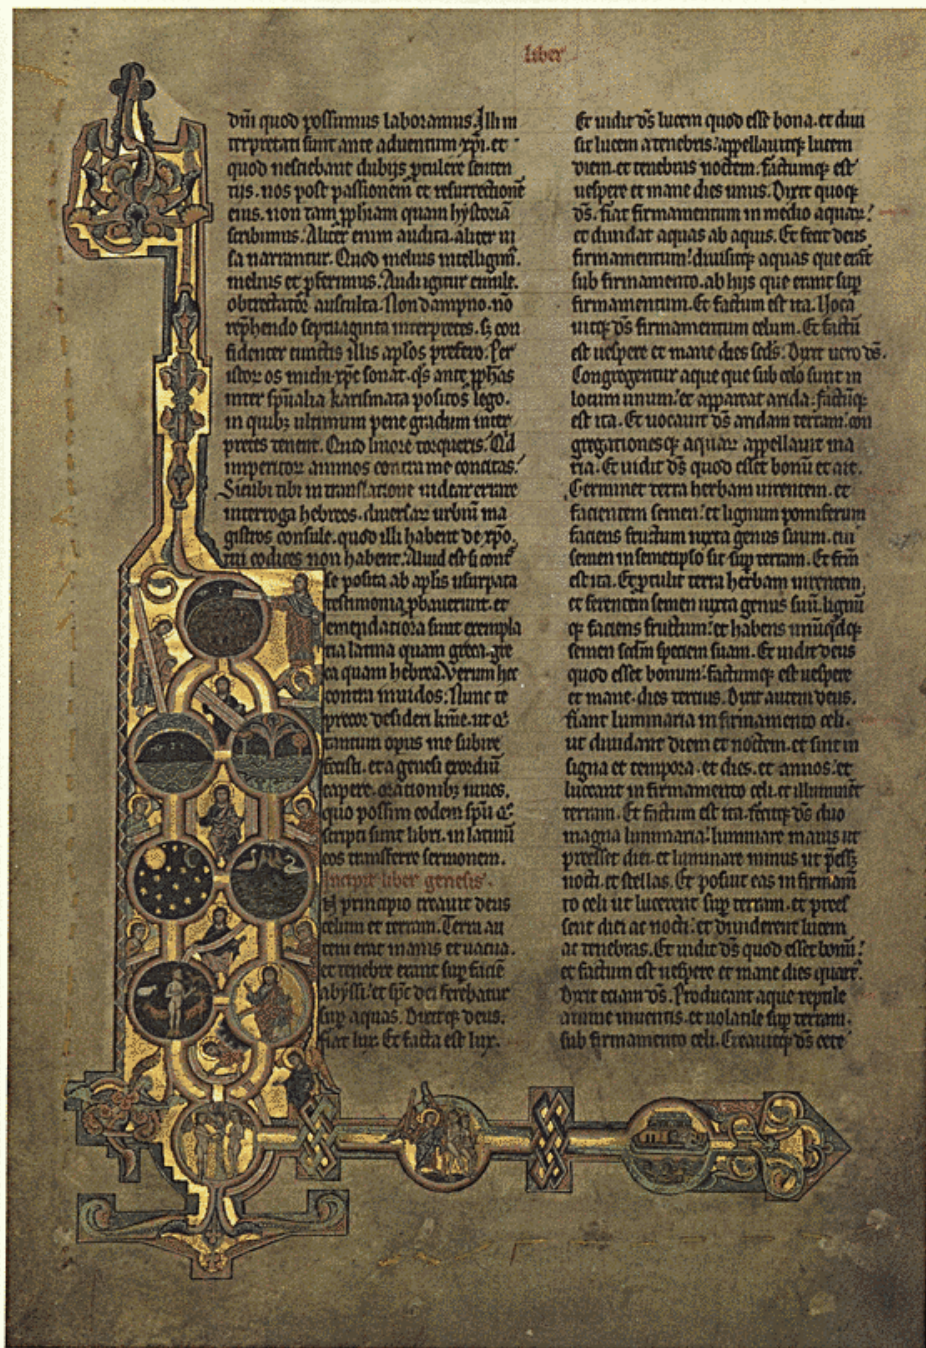 liber
dm̄ quod possumus laboramus. Illi in
terpretati sunt ante aduentum xp̄i. et
quod nesciebant dubijs ꝓtulere senten
tijs. nos post passionem et resurrectionē
eius. non tam ꝓphiam quam hystoriā
scribimus. Aliter enim audita. aliter ui
sa narrantur. Quod melius intelligim̄.
melius et ꝓferimus. Audi igitur emule.
obtrectator ausculta. Non dampno. nō
rep̄hendo septuaginta interpretes. sꝫ con
fidenter cunctis illis ap̄los prefero. Per
istoꝝ os michi xp̄c sonat. q̄s ante ꝓphās
inter sp̄ualia karismata positos lego.
in quibꝫ ultimum pene gradum inter
pretes tenent. Quid liuore torqueris. Qid
imperitoꝝ animos contra me concitas.
Sicubi tibi in translatione uidear errare
interroga hebreos. diuersaꝝ urbiū ma
gistros consule. quod illi habent de xp̄o.
tui codices non habent. Aliud est si cont̄
se posita ab ap̄lis usurpata
testimonia ꝓbauerunt. et
emendatiora sunt exempla
ria latina quam greca. gre
ca quam hebrea. Verum hec
contra inuidos. Nunc te
precor desideri km̄e. ut q̄
tantum opus me subire
fecisti. et a genesi exordiū
capere. orationibꝫ iuues.
quo possim eodem sp̄u q̄
scripti sunt libri. in latinū
eos transferre sermonem.
Incipit liber genesis.
N principio creauit deus
celum et terram. Terra au
tem erat inanis et uacua.
et tenebre erant sup̄ faciē
abyssi. et sp̄c dei ferebatur
sup̄ aquas. Dixitqꝫ deus.
fiat lux. Et facta est lux.
Et uidit d̄s lucem quod esset bona. et diui
sit lucem a tenebris. appellauitqꝫ lucem
diem. et tenebras noctem. factumqꝫ est
uespere et mane dies unus. Dixit quoqꝫ
d̄s. fiat firmamentum in medio aquaꝝ.
et diuidat aquas ab aquis. Et fecit deus
firmamentum. diuisitqꝫ aquas que erāt
sub firmamento. ab hijs que erant sup̄
firmamentum. Et factum est ita. Uoca
uitqꝫ d̄s firmamentum celum. Et factū
est uespere et mane dies sc̄ds. Dixit uero d̄s.
Congregentur aque que sub celo sunt in
locum unum. et appareat arida. factūqꝫ
est ita. Et uocauit d̄s aridam terram. con
gregationesqꝫ aquaꝝ appellauit ma
ria. Et uidit d̄s quod esset bonū et ait.
Germinet terra herbam uirentem. et
facientem semen. et lignum pomiferum
faciens fructum iuxta genus suum. cui
semen in semetipso sit sup̄ terram. Et fc̄m
est ita. Et ꝓtulit terra herbam uirentem
et ferentem semen iuxta genus suū. lignū
qꝫ faciens fructum. et habens unūqdqꝫ
semen sc̄dm speciem suam. Et uidit deus
quod esset bonum. factumqꝫ est uespere
et mane. dies tercius. Dixit autem deus.
fiant luminaria in firmamento celi.
ut diuidant diem et noctem. et sint in
signa et tempora. et dies. et annos. et
luceant in firmamento celi. et illuminēt
terram. Et factum est ita. fecitqꝫ d̄s duo
magna luminaria. luminare maius ut
preesset diei. et luminare minus ut p̄essꝫ
nocti. et stellas. Et posuit eas in firmam̄
to celi ut lucerent sup̄ terram. et prees
sent diei ac nocti. et diuiderent lucem
ac tenebras. Et uidit d̄s quod esset bonū.
et factum est uespere et mane dies quart̄.
Dixit eciam d̄s. Producant aque reptile
anime uiuentis. et uolatile sup̄ terram.
sub firmamento celi. Creauitqꝫ d̄s cete